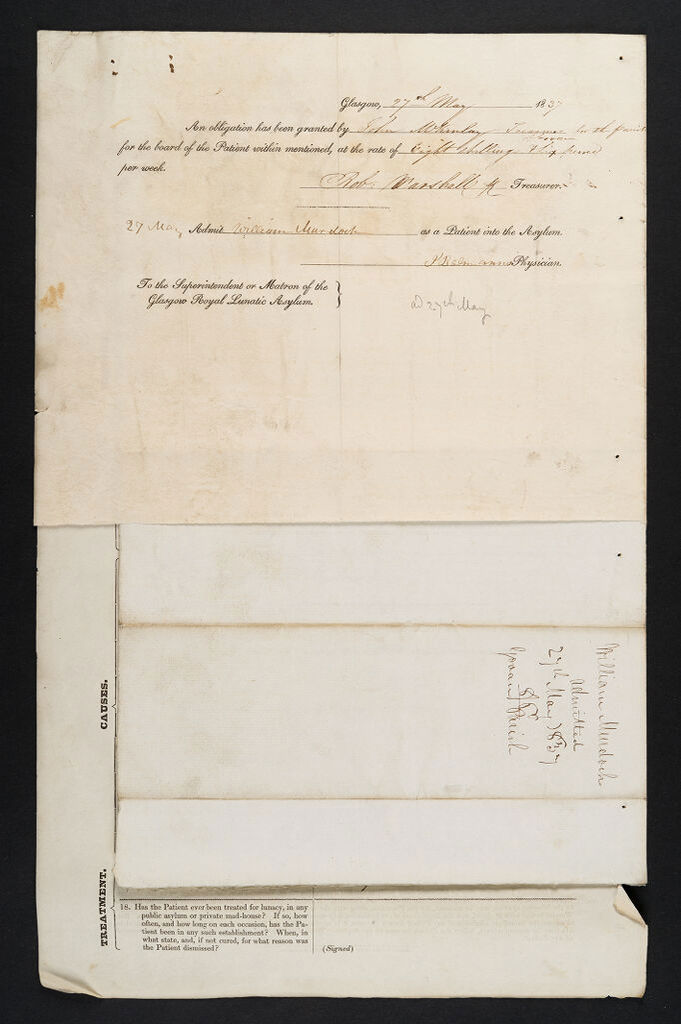 Glasgow, 27th May 1837
An obligation has been granted by John McKinlay Treasurer for the Parish
Govan
for the board of the Patient within mentioned, at the rate of Eight Shillings & Six pence
per week.
Rob. Marshall Treasurer.
27 May Admit William Murdoch as a Patient into the Asylum.
Physician.
To the Superintendent or Matron of the
Glasgow Royal Lunatic Asylum.
27th May
William Murdoch
Admitted
27th May 1837
Govan Parish
CAUSES.
TREATMENT.
18. Has the Patient ever been treated for lunacy, in any
public asylum or private mad-house? If so, how
often, and how long on each occasion, has the Pa-
tient been in any such establishment? When, in
what state, and, if not cured, for what reason was
the Patient dismissed?
(Signed)